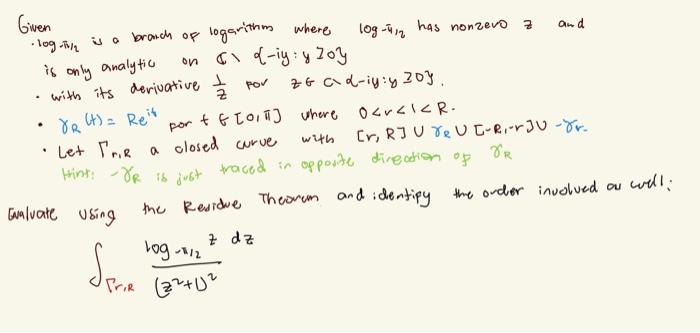 Given
· log-π/2 is a branch of logarithm where log-π/2 has nonzero z and
is only analytic on ℂ\{-iy: y≥0}
· with its derivative 1/z for z∈ℂ\{-iy: y≥0}.
· γR(t) = Re^it for t∈[0,π] where 0<r<1<R.
· Let Γr,R a closed curve with [r,R]∪γR∪[-R,-r]∪-γr.
Hint: -γR is just traced in opposite direction of γR
Evaluate using the Residue Theorem and identify the order involved as well:
∫Γr,R log-π/2 z dz / (z²+1)²